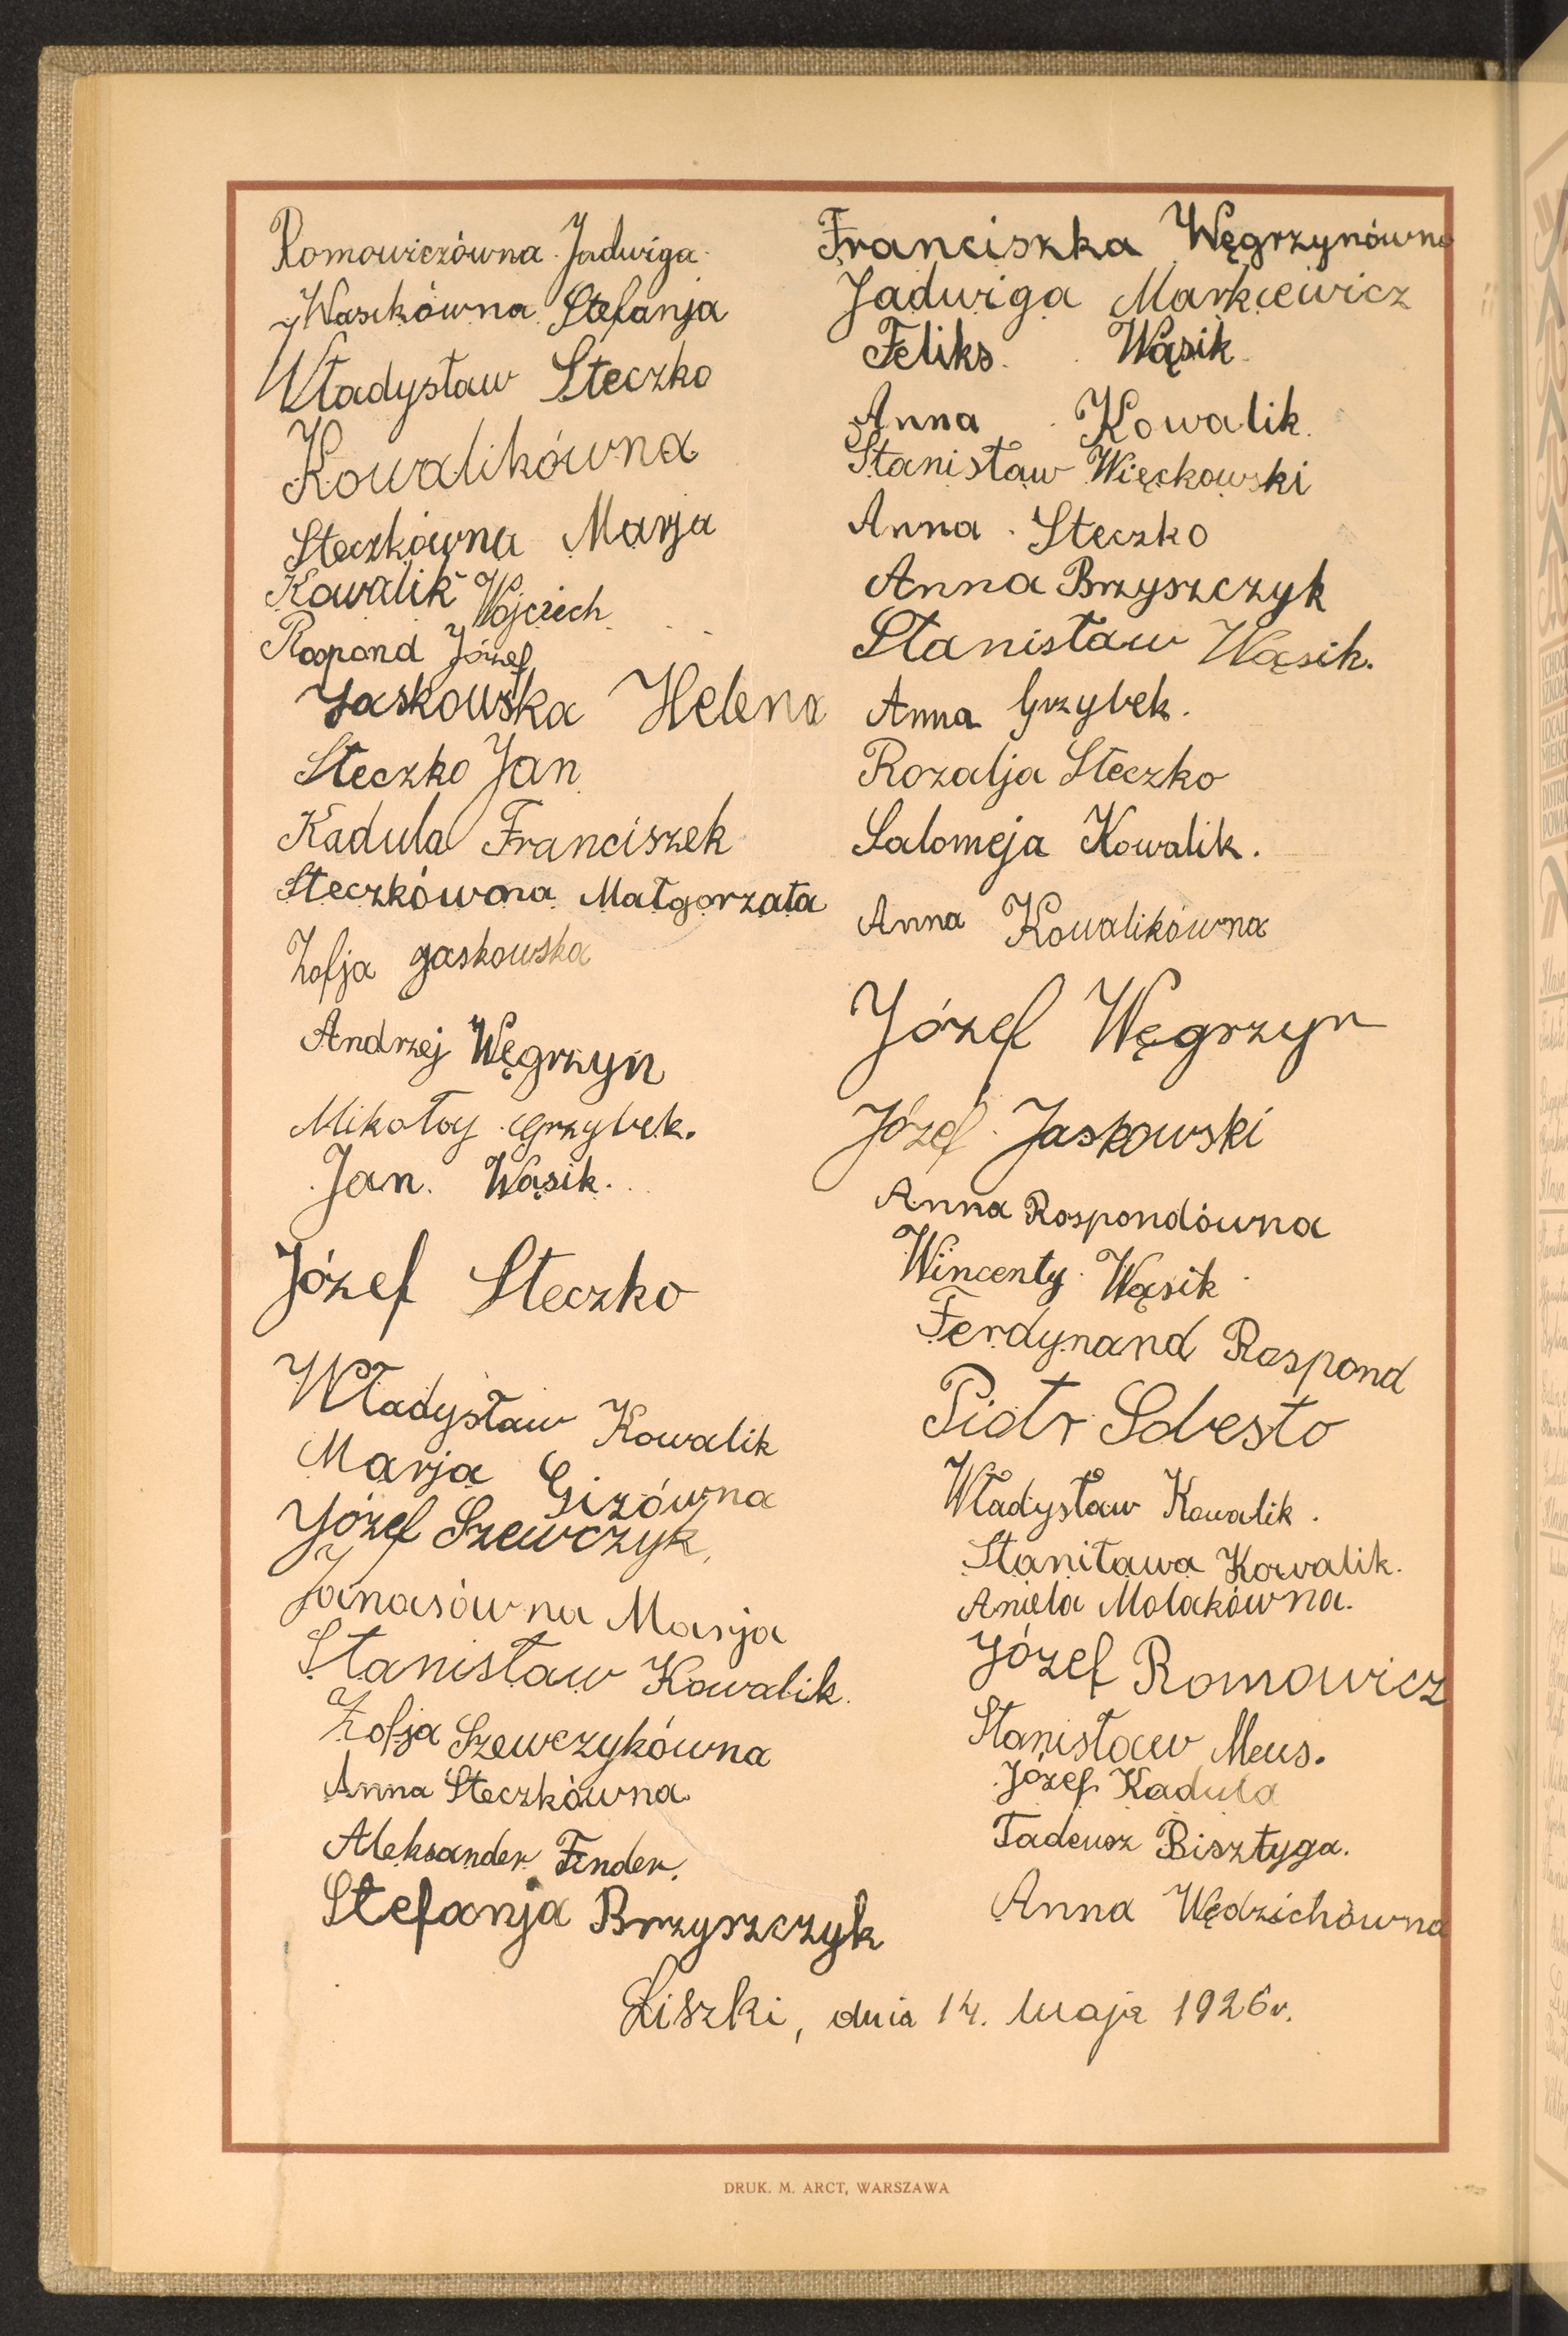 Romowiczówna Jadwiga
Wasikówna Stefanja
Władysław Steczko
Kowalikówna
Steczkówna Marja
Kowalik Wojciech
Rospond Józef
Jaskowska Helena
Steczko Jan
Kadula Franciszek
Steczkówna Małgorzata
Zofja Jaskowska
Andrzej Węgrzyn
Mikołoj Grzybek.
Jan. Wąsik.
Józef Steczko
Władysław Kowalik
Marja Gizówna
Józef Szewczyk
Janasówna Marja
Stanisław Kowalik.
Zofja Szewczykówna
Anna Steczkówna
Aleksander Fender.
Stefanja Brzyszczyk
Franciszka Węgrzynówna
Jadwiga Markiewicz
Feliks Wąsik
Anna Kowalik.
Stanisław Więckowski
Anna Steczko
Anna Brzyszczyk
Stanisław Wąsik.
Anna Grzybek.
Rozalja Steczko
Salomeja Kowalik.
Anna Kowalikówna
Józef Węgrzyn
Józef Jaskowski
Anna Rospondówna
Wincenty Wąsik
Ferdynand Rospond
Piotr
Władysław Kowalik.
Stanitawa Kowalik.
Aniela Molakówna.
Józef Romowicz
Stanisław Meus.
Józef Kadula
Tadeusz Bisztyga.
Anna Wędzichówna
Liszki, dnia 14. maja 1926r.
DRUK. M. ARCT, WARSZAWA